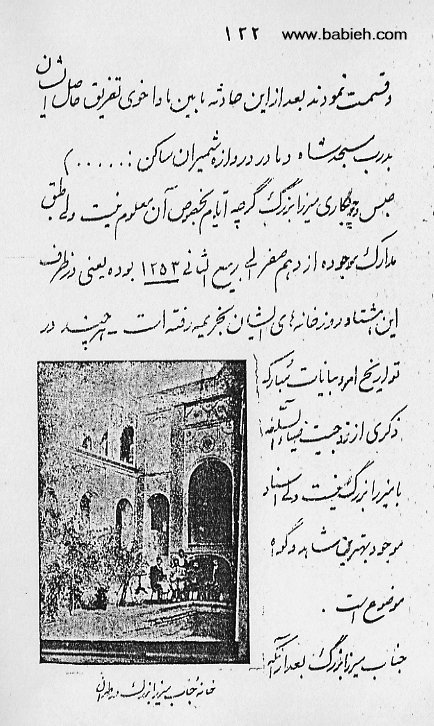 ۱۲۲ www.babieh.com
و قسمت نمودند بعد از این حادثه ما بین ما و اخوی تفریق حاصل ایشان
بدرب مسجد شاه و ما در دروازه شمیران ساکن : .....)
حبس و چوبکاری میرزا بزرگ گرچه ایام بخصوص آن معلوم نیست ولی طبق
مدارک موجوده از دهم صفر الی ربیع الثانی ۱۲۵۳ بوده یعنی در ظرف
این هشتاد روز خانه های ایشان بجریمه رفته است - هر چند در
تواریخ امر و بیانات مبارکه
ذکری از زوجیت ضیاء السلطنه
با میرزا بزرگ نیست ولی اسناد
موجود بهترین شاهد و گواه
موضوع است .
جناب میرزا بزرگ بعد از آنکه
خانه جناب میرزا بزرگ در طهران